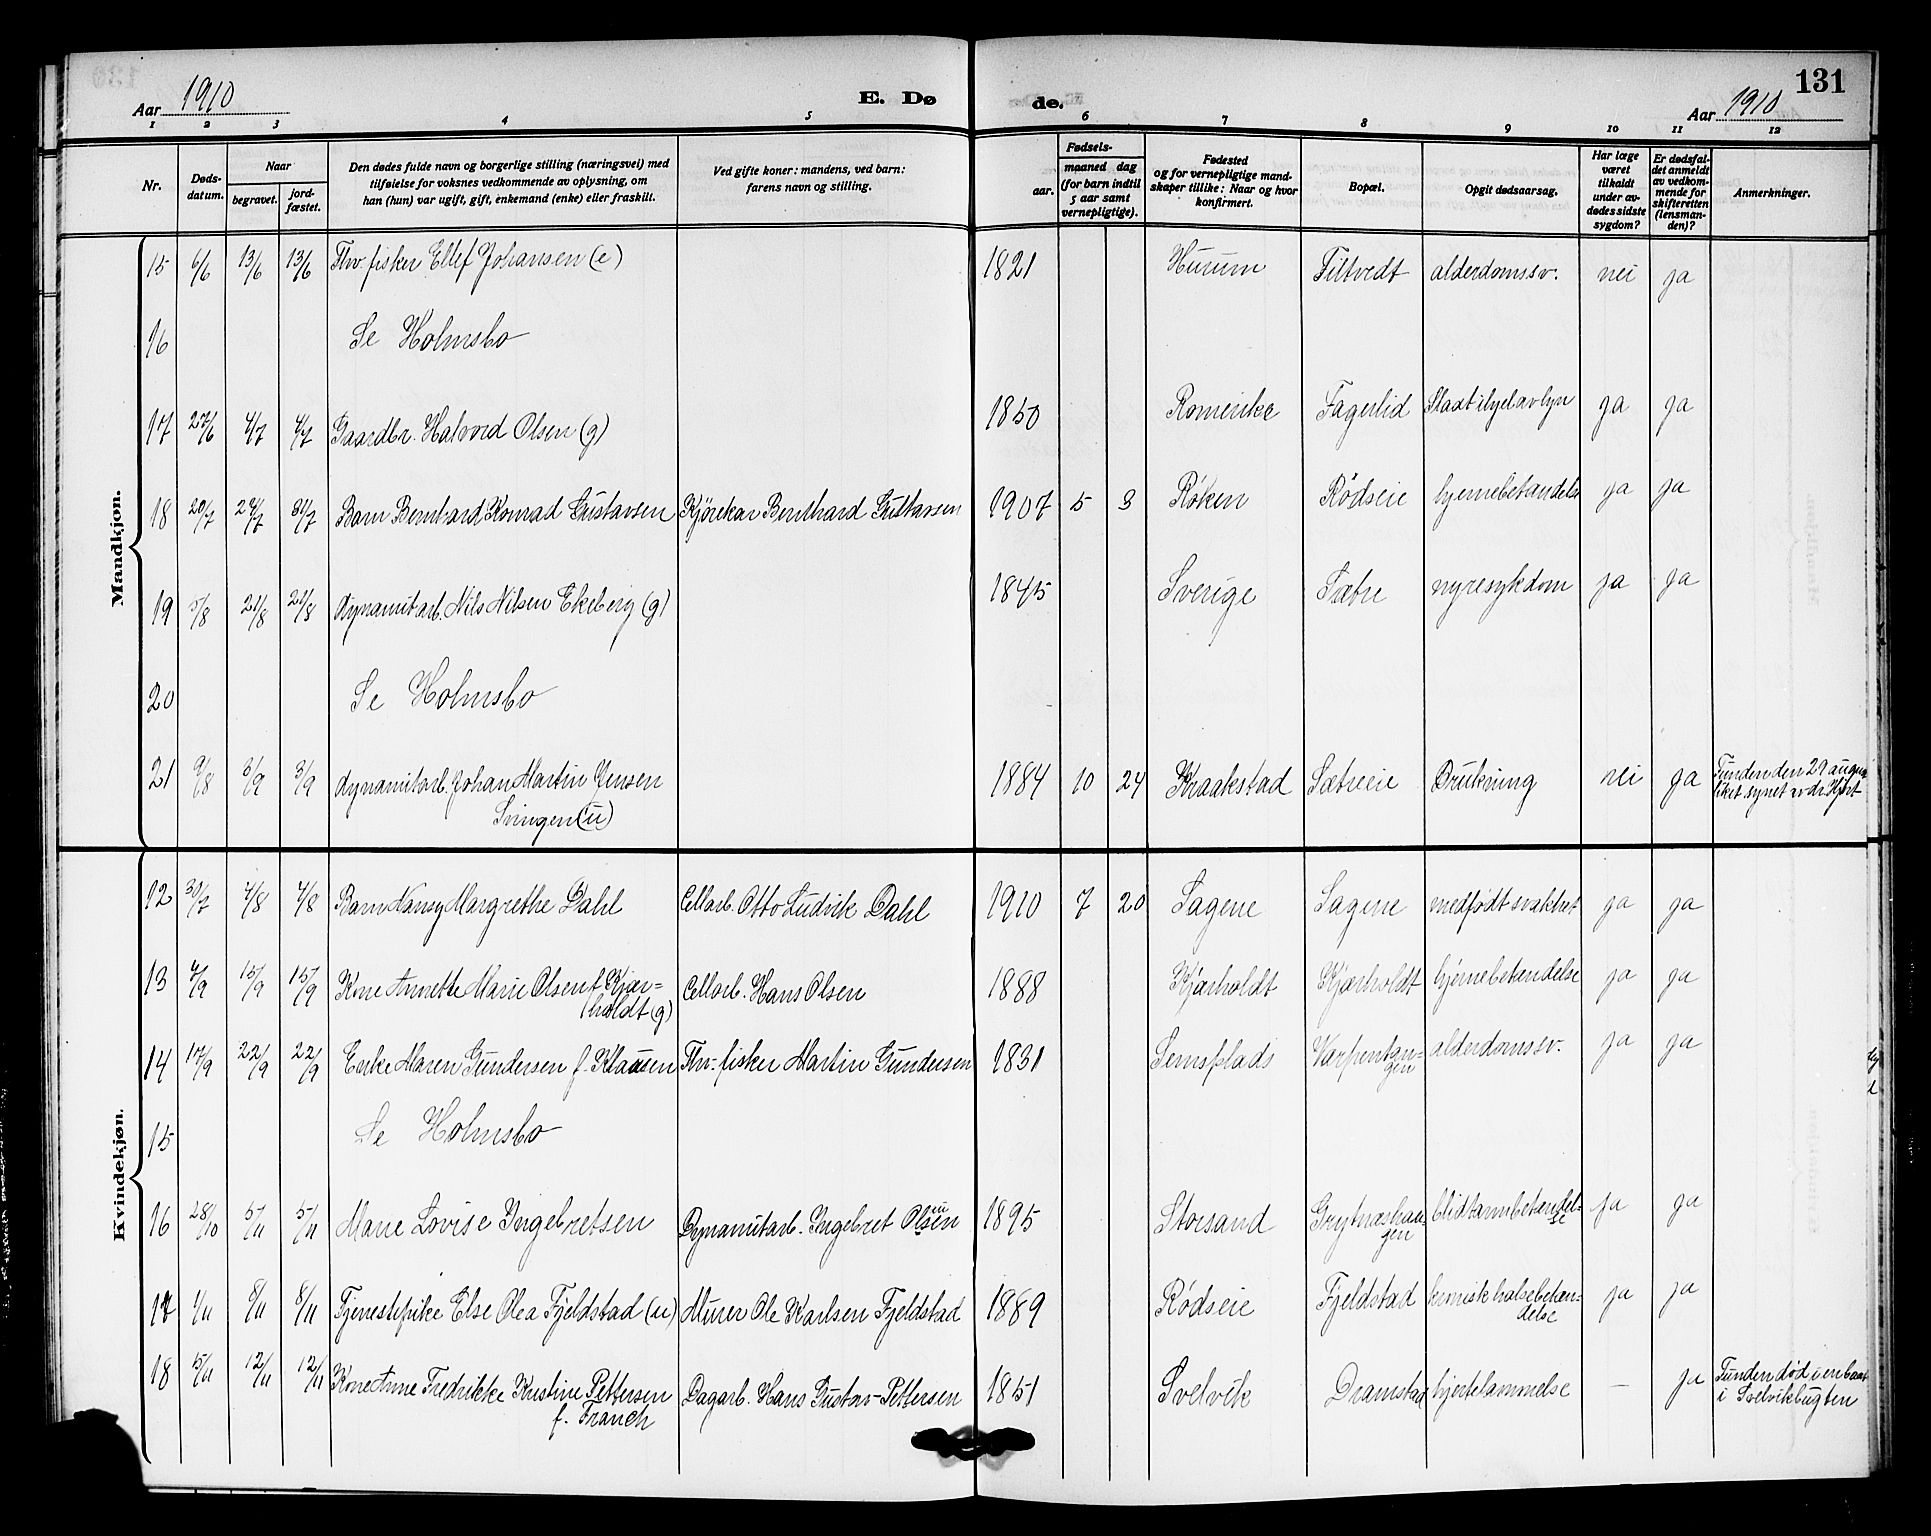 Aar 1910
E. Dø
de.
Aar 1910
131
1 2 3 4 5 6 7 8 9 10 11 12
Nr.
Døds-
datum.
Naar
begravet.
jord-
fæstet.
Den dødes fulde navn og borgerlige stilling (næringsvei) med
tilføielse for voksnes vedkommende av oplysning, om
han (hun) var ugift, gift, enkemand (enke) eller fraskilt.
Ved gifte koner: mandens, ved barn:
farens navn og stilling.
Fødsels-
aar.
maaned dag
(for barn indtil
5 aar samt
vernepligtige).
Fødested
og for vernepligtige mand-
skaper tillike: Naar og hvor
konfirmert.
Bopæl.
Opgit dødsaarsag.
Har læge
været
tilkaldt
under av-
dødes sidste
sygdom?
Er dødsfal-
det anmeldt
av vedkom-
mende for
skifteretten
(lensman-
den)?
Anmerkninger.
Mandkjøn.
15 6/6 13/6 13/6 Fhv. fisker Ellef Johansen (e) 1821 Hurum Tiltvedt alderdomssv. nei ja
16 Se Holmsbo
17 27/6 4/7 4/7 Gaardbr. Halvord Olsen (g) 1850 Romerike Fagerlid Slaat ihjel av lyn ja ja
18 20/7 24/7 31/7 Barn Bernhard Konrad Gustavsen Kjørekar Bernhard Gustavsen 1907 5 3 Røken Rødseie hjernebetændelse ja ja
19 5/8 21/8 21/8 dynamitarb. Nils Nilsen Ekeberg (g) 1845 Sverige Sætre nyresykdom ja ja
20 Se Holmsbo
21 9/8 3/9 3/9 dynamitarb. Johan Martin Jensen 1884 10 24 Kraakstad Sætreeie Drukning nei ja Funden den 29 august
Svingen (u) liket synet av dr. Hjort
Kvindekjøn.
12 30/7 4/8 4/8 Barn Nansy Margrethe Dahl Cellarb. Otto Ludvik Dahl 1910 7 20 Sagene Sagene medfødt svakhet ja ja
13 4/9 15/9 15/9 Kone Annette Marie Olsen f. Kjær= Cellarb. Hans Olsen 1888 Kjærholdt Kjærholdt hjernebetændelse ja ja
holdt (g)
14 17/9 22/9 22/9 Enke Maren Gundersen f. Klausen Fhv. fisker Martin Gundersen 1831 Semsplads Varpentan= alderdomssv. ja ja
gen
15 Se Holmsbo
16 28/10 5/11 5/11 Marie Lovise Ingebretsen Dynamitarb. Ingebret Olsen 1895 Storsand Grytnæshau= blidtarmbetændel= ja ja
gen se
17 1/11 8/11 8/11 Tjenestepike Else Olea Fjeldstad (u) Murer Ole Karlsen Fjeldstad 1889 Rødseie Fjeldstad kronisk halsebetæn= ja ja
delse
18 5/11 12/11 12/11 Kone Anne Fredrikke Kristine Pettersen Dagarb. Hans Gustav Pettersen 1851 Svelvik Dramstad hjertelammelse – ja Funden død i en baat
f. Tranch i Svelvikbugten